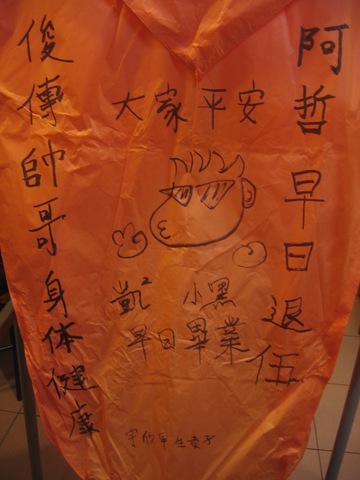 阿哲早日退伍
大家平安
凱² 小黑
早日畢業
俊傳帥哥身体健康